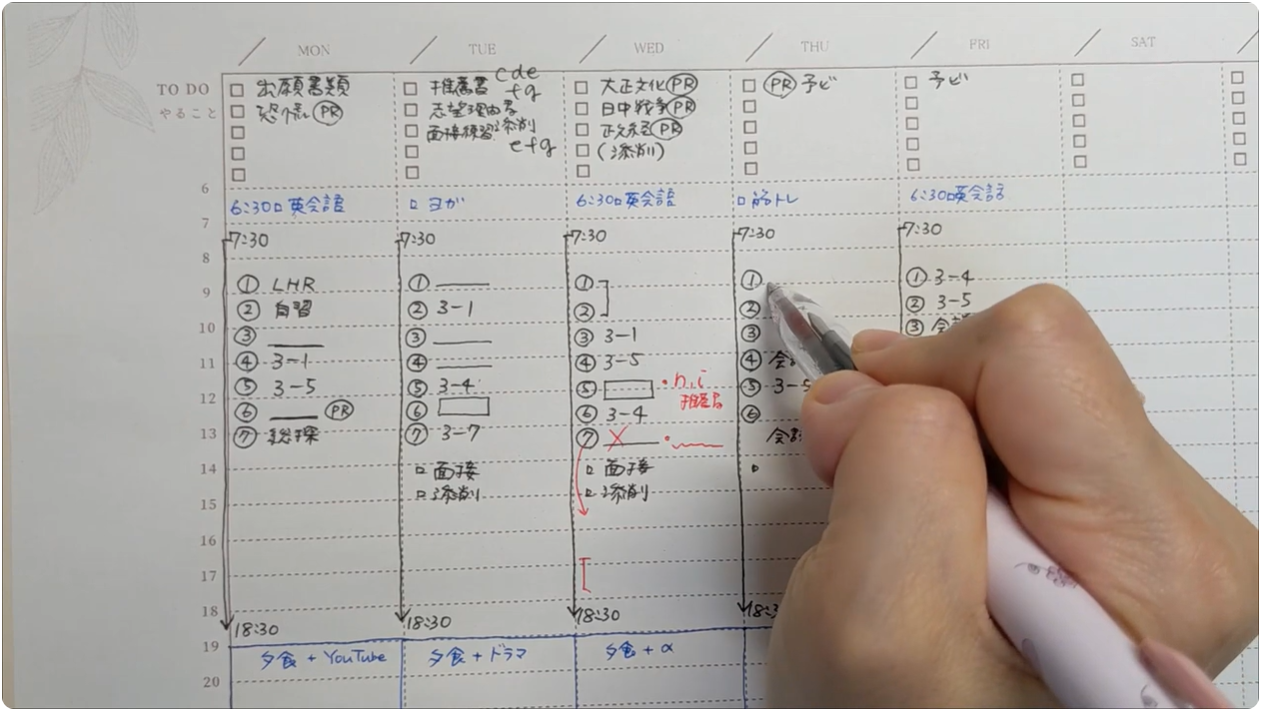 MON TUE WED THU FRI SAT
TO DO
やること
出願書類
恐慌 PR
推薦書 cde
fg
志望理由書
面接練習 添削
efg
大正文化 PR
日中戦争 PR
PR
(添削)
PR 予ビ
予ビ
6
7
8
9
10
11
12
13
14
15
16
17
18
19
20
6:30 英会話
7:30
① LHR
② 自習
③
④ 3-1
⑤ 3-5
⑥ PR
⑦ 総探
18:30
夕食 + YouTube
ヨガ
7:30
①
② 3-1
③
④
⑤ 3-4
⑥
⑦ 3-7
面接
添削
18:30
夕食 + ドラマ
6:30 英会話
7:30
①
②
③ 3-1
④ 3-5
⑤
・n, i
⑥ 3-4
⑦
面接
添削
18:30
夕食 + α
筋トレ
7:30
①
②
③
④
⑤ 3-5
⑥
6:30 英会話
7:30
① 3-4
② 3-5
③